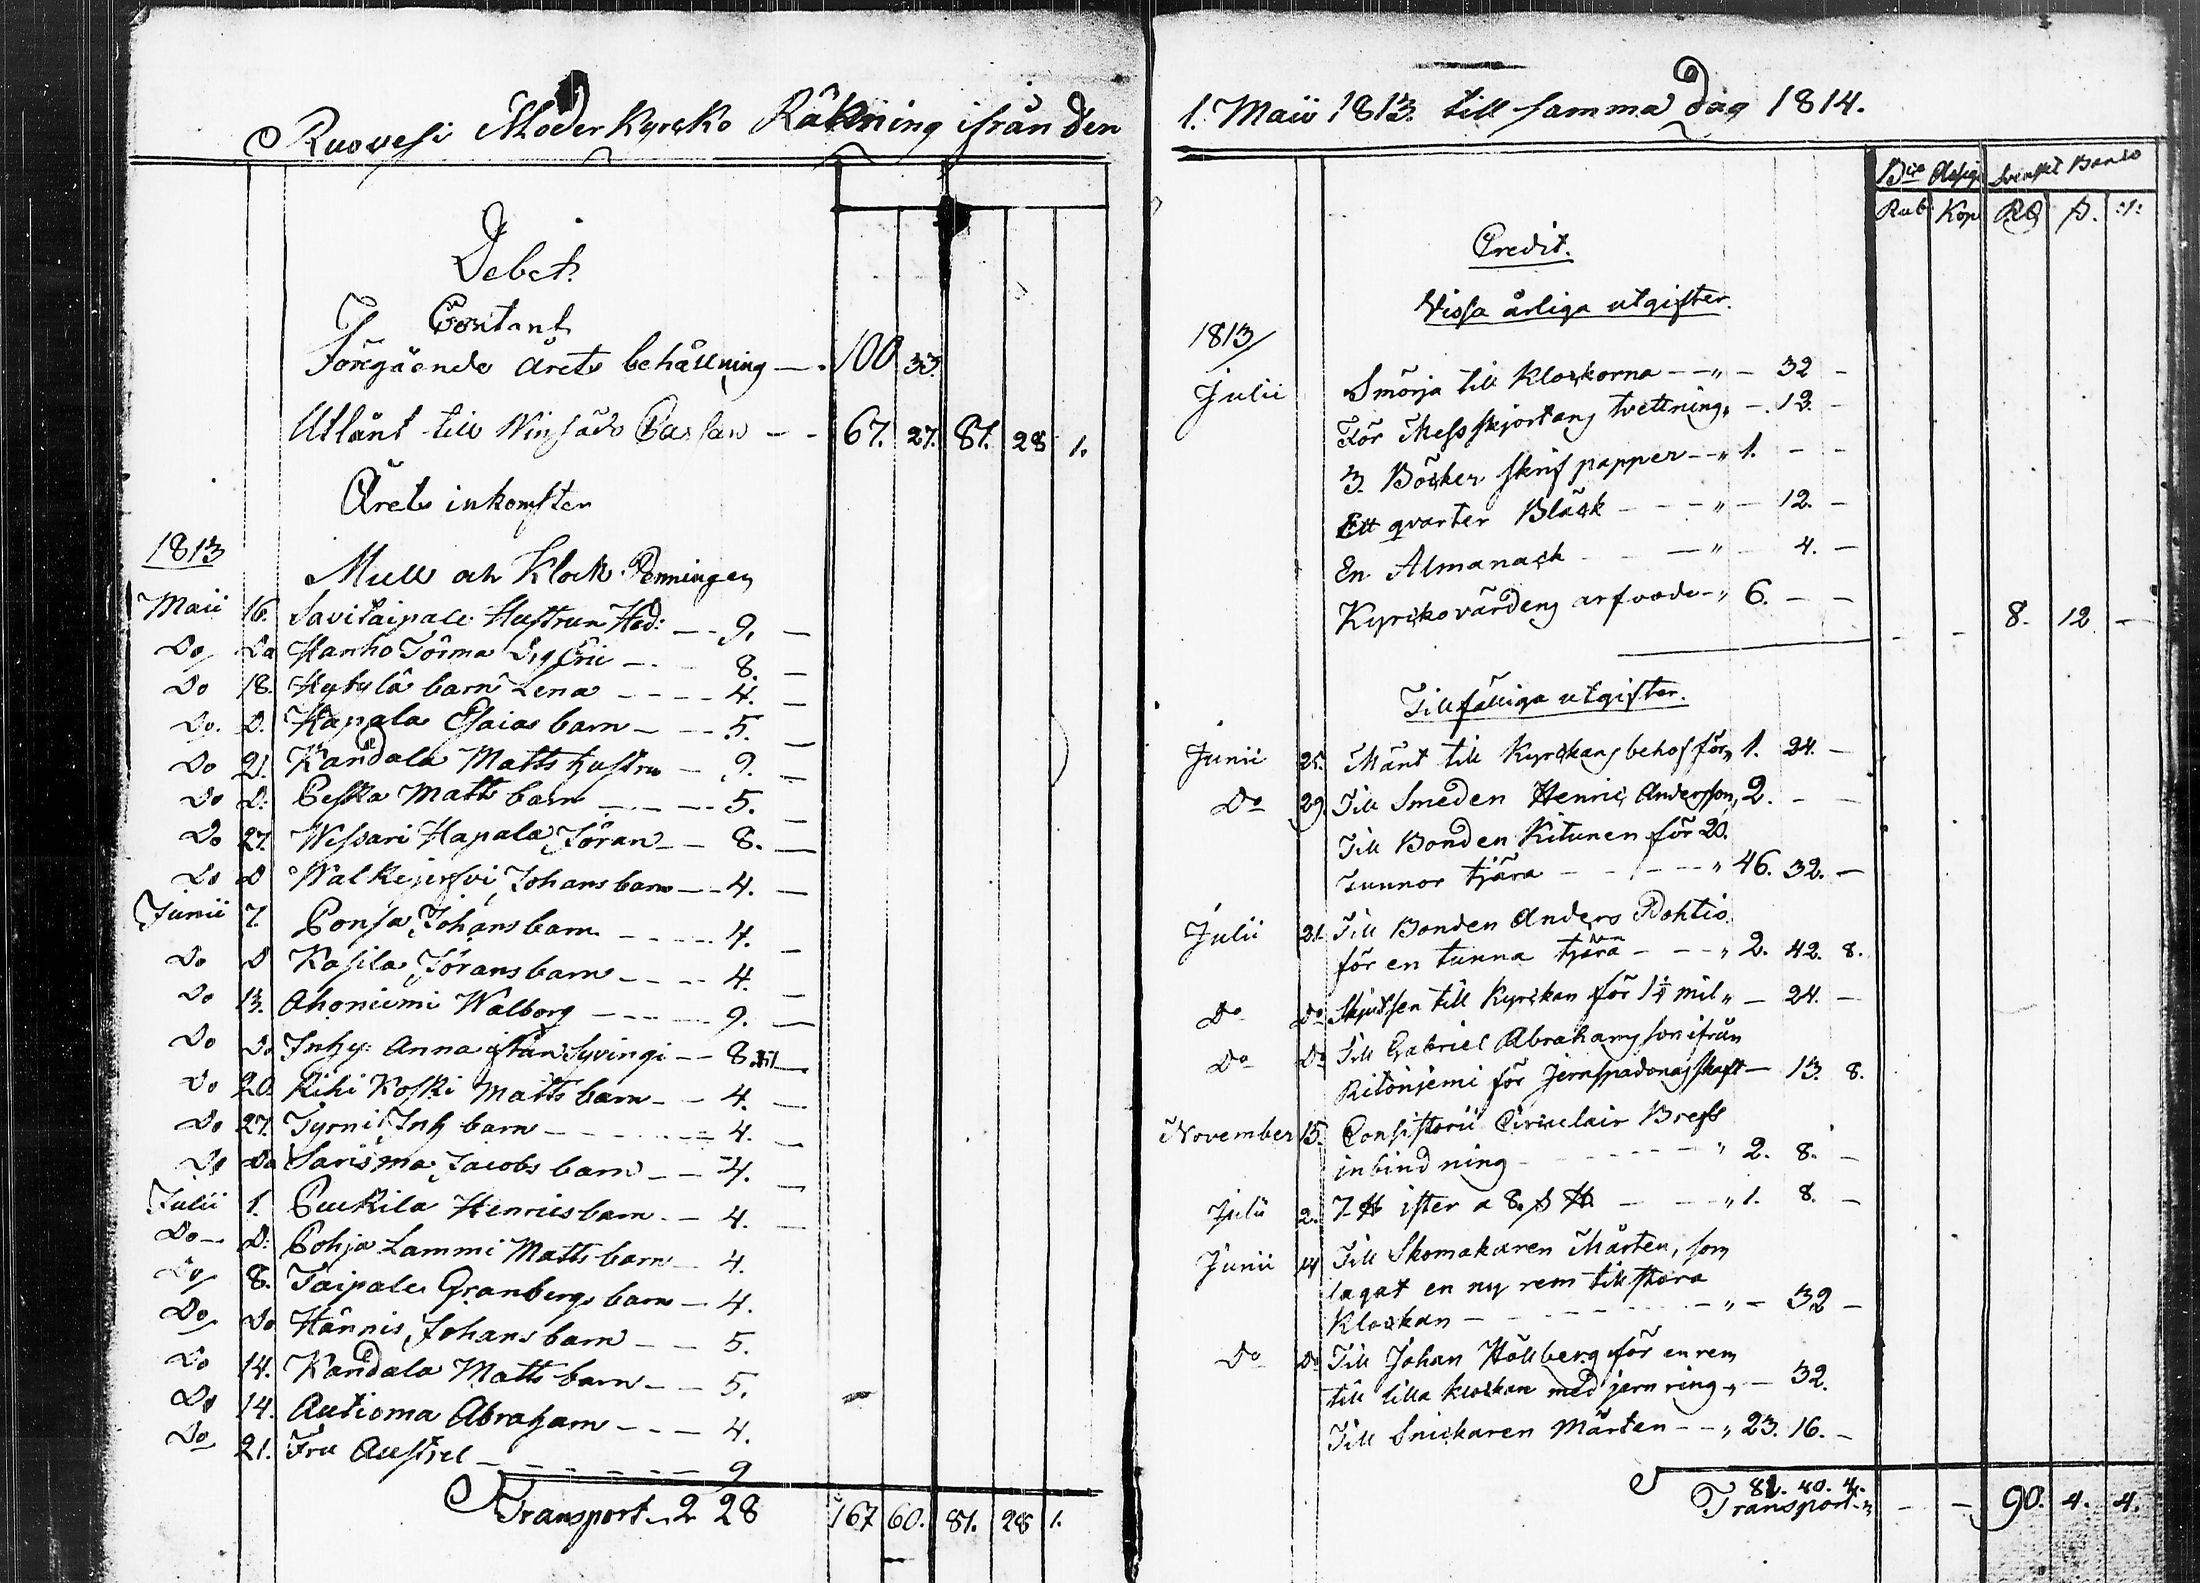 Ruovesi Moder Kyrcko Räkning ifrån den
Debet.
Contant
Föregående Årets behållning — 100 33.
Utlånt till Cassan — 67. 27. 81. 28 1.
Årets inkomster
1813
Mull och Klock Penningen
Maii 16. Savitaipale Hustrun Hed: — 9. —
Do Do Hanho Jörma — 8. —
Do 18. Hytylä barn Lena — 4. —
Do. D. Hapala Esaias barn — 5. —
Do 21. Kandala Matts hustru — 9. —
Do D. Peska Matts barn — 5. —
Do 27. Wessari Hapala Jöran — 8. —
Do D Walkejerfvi Johans barn — 4. —
Junii 7. Ponsa Johans barn — 4. —
Do D Kasila Jörans barn — 4. —
Do 13. Ahoniemi Walborg — 9. —
Do Do Inhy. Anna ifrån Syvingi — 8 —
Do 20. Rihi Koski Matts barn — 4. —
Do 27. Tyrni Inh barn — 4. —
Do Do Sarisma Jacobs barn — 4. —
Julii 1. Puukila Henrics barn — 4. —
Do D. Pohja Lammi Matts barn — 4.
Do 8. Taipale Granbergs barn — 4.
Do Do Hännis Johans barn — 5.
Do 14. Kandala Matts barn — 5.
Do 14. Autioma Abraham — 4.
Do 21. Fru Austrel — 9
Transport 2 28 167 60. 81. 28 1.
1. Maii 1813. till samma dag 1814.
Bco Assign Svenskt Banco
Rub Kop RD ß. :1:
Credit.
Vissa årliga utgifter.
1813
Julii Smörja till Klockorna — " — 32 —
För Messskjortans tvettning " — 12. —
3. Böcker skrif papper — " 1. — —
Ett qvarter Bläck — " — 12. —
En Almanach — " — 4. —
Kyrckovärdens arfvode — " 6. — — — — 8. 12 —
Tillfälliga utgifter.
Junii 25. Mänt till Kyrckans behof för " 1. 24. —
Do 29. Till Smeden Henric Andersson, 2. — —
Till Bonden Kitunen för 20.
Tunnor tjära — " 46. 32. —
Julii 21. Till Bonden Anders Pohtio
för en tunna tjära — " 2. 42. 8.
Do Do Skjutsen till Kyrckan för 1¼ mil " — 24. —
Do Do Till Gabriel Abrahamsson ifrån
Ritoniemi för Jernspadonas skaft — 13. 8.
November 15. Consistorii Circulair Brefs
inbindning — " 2. 8. —
Julii 2. 7 ℔ ister a 8. ß ℔ — " 1. 8. —
Junii 14 Till Skomakaren Mårten, som
lagat en ny rem till stora
Klockan — " — 32 —
Do Do Till Johan Hällberg för en rem
till lilla klockan med jern ring " — 32.
Till Snickaren Mårten — " 23. 16. —
81. 40. 4.
Transport " — — 90. 4. 4.